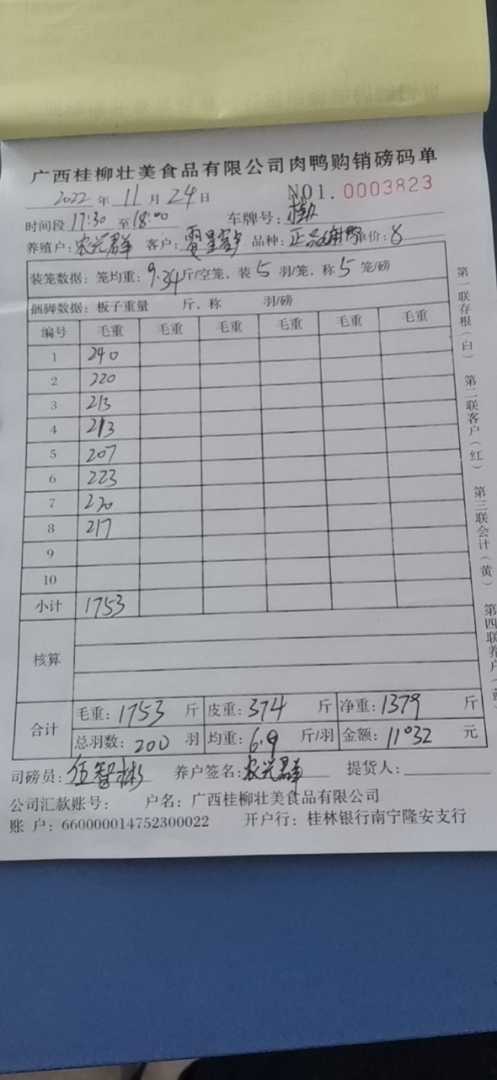 广西桂柳壮美食品有限公司肉鸭购销磅码单
2022 年 11 月 24 日 NO1. 0003823
时间段 17:30 至 18:00 车牌号:
养殖户: 农兴群 客户: 品种: 正品 单价: 8
装笼数据: 笼均重: 9.34 斤/空笼、装 5 羽/笼、称 5 笼/磅
捆脚数据: 板子重量 斤、称 羽/磅
编号 毛重 毛重 毛重 毛重 毛重 毛重
1 240
2 220
3 213
4 213
5 207
6 223
7 220
8 217
9
10
小计 1753
核算
合计 毛重: 1753 斤 皮重: 374 斤 净重: 1379 斤
总羽数: 200 羽 均重: 6.9 斤/羽 金额: 11032 元
司磅员: 伍智彬 养户签名: 农兴群 提货人:
公司汇款账号: 户名: 广西桂柳壮美食品有限公司
账 户: 660000014752300022 开户行: 桂林银行南宁隆安支行
第一联存根(白) 第二联客户(红) 第三联会计(黄) 第四联养户